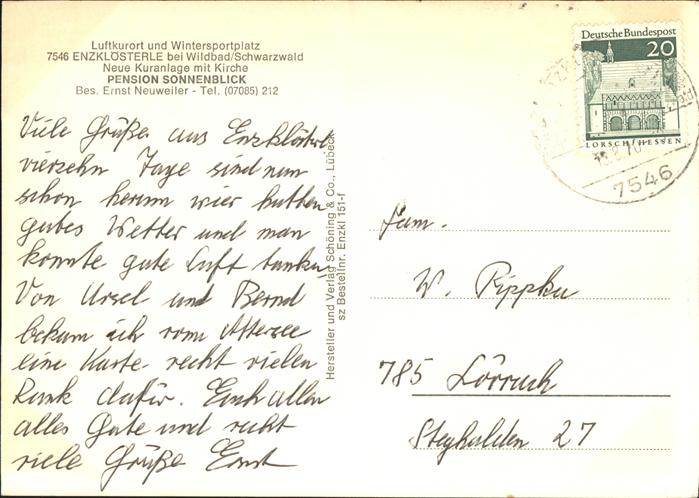 Luftkurort und Wintersportplatz
7546 ENZKLÖSTERLE bei Wildbad/Schwarzwald
Neue Kuranlage mit Kirche
PENSION SONNENBLICK
Bes. Ernst Neuweiler - Tel. (07085) 212
Viele Grüße aus Enzklösterle
vierzehn Tage sind nun
schon herum wier hatten
gutes Wetter und man
konnte gute Luft tanken,
Von Ursel und Bernd
bekam ich vom Attersee
eine Karte recht vielen
Dank dafür. Euch allen
alles Gute und recht
viele Grüße Ernst
Hersteller und Verlag Schöning & Co., Lübeck
sz Bestellnr. Enzkl 151-f
Deutsche Bundespost
20
LORSCH/HESSEN
7546
Fam.
W. Rippka
785 Lörrach
Steghalden 27